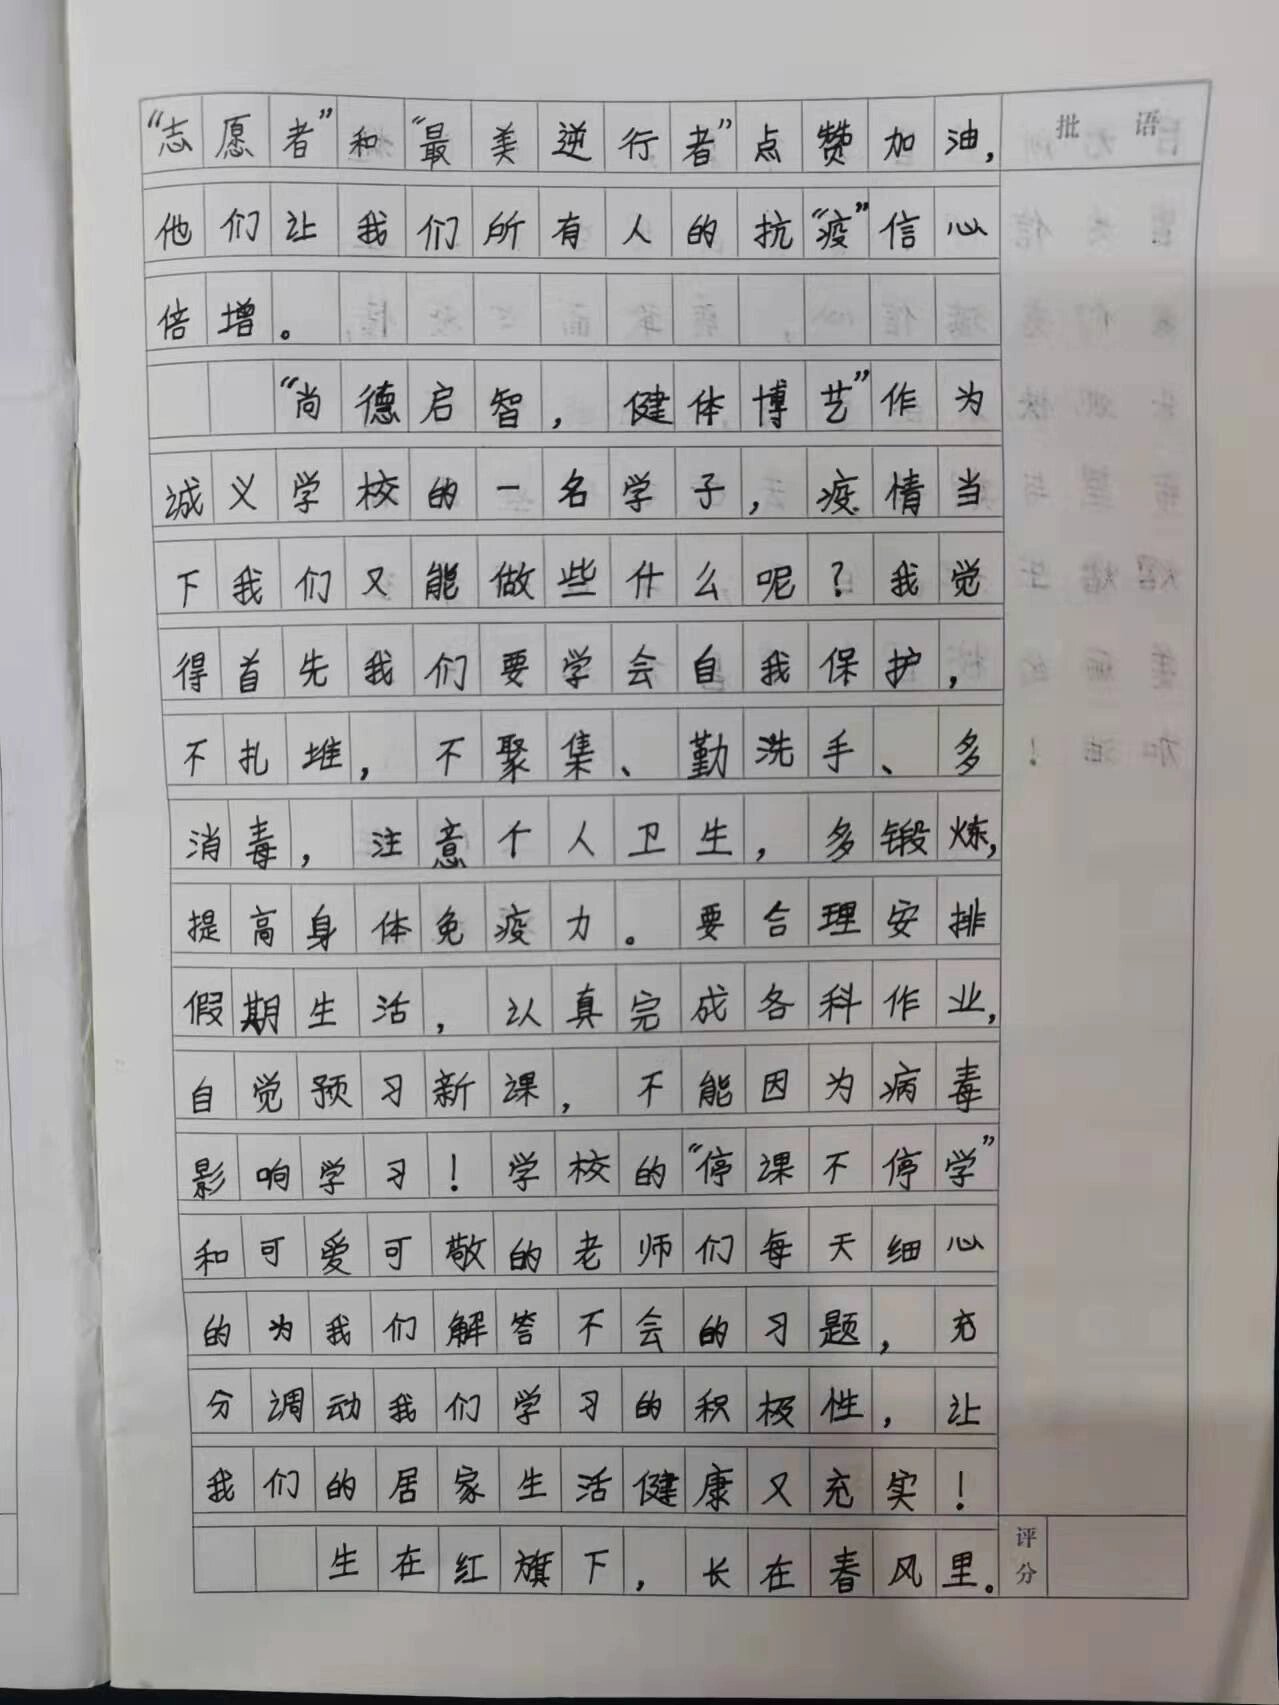 批 语
“志愿者”和“最美逆行者”点赞加油,
他们让我们所有人的抗“疫”信心
倍增。
“尚德启智,健体博艺”作为
诚义学校的一名学子,疫情当
下我们又能做些什么呢?我觉
得首先我们要学会自我保护,
不扎堆,不聚集、勤洗手、多
消毒,注意个人卫生,多锻炼,
提高身体免疫力。要合理安排
假期生活,认真完成各科作业,
自觉预习新课,不能因为病毒
影响学习!学校的“停课不停学”
和可爱可敬的老师们每天细心
的为我们解答不会的习题,充
分调动我们学习的积极性,让
我们的居家生活健康又充实!
生在红旗下,长在春风里。
评分